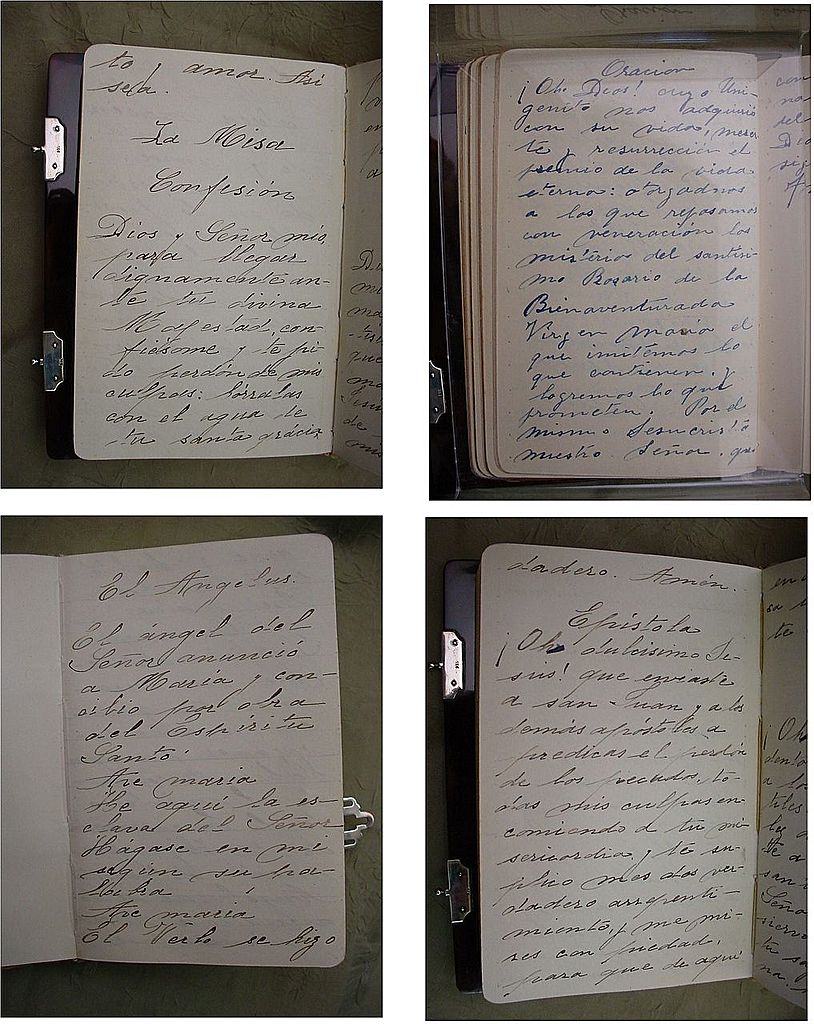 to y amor. Asi
sea.
La Misa
Confesión
Dios y Señor mio,
para llegar
dignamente an-
te tu divina
Majestad, con-
fiésome y te pi
do perdón de mis
culpas: bórralas
con el agua de
tu santa grácia
Oracion
¡Oh Dios! cuyo Uni-
genito nos adquirió
con su vida, muer
te y resurrección el
premio de la vida
eterna: otorgadnos
a los que repasamos
con veneración los
misterios del santisi
mo Rosario de la
Bienaventurada
Virgen maria el
que imitemos lo
que contienen, y
logremos lo que
prometen. Por el
mismo Jesucristo
nuestro Señor, que
El Angelus.
El ángel del
Señor anunció
a Maria y con-
cibio por obra
del Espiritu
Santo.
Ave maria
He aquí la es-
clava del Señor
Hágase en mi
según su pa-
labra
Ave maria
El Verbo se hizo
dadero. Amén.
Epístola
¡Oh dulcisimo Je-
sus! que enviaste
a san Juan y a los
demás apóstoles a
predicar el perdón
de los pecados, to-
das mis culpas en-
comiendo a tu mi
sericordia, y te su-
plico me des ver-
dadero arrepenti-
miento, y me mi-
res con piedad,
para que de aquí